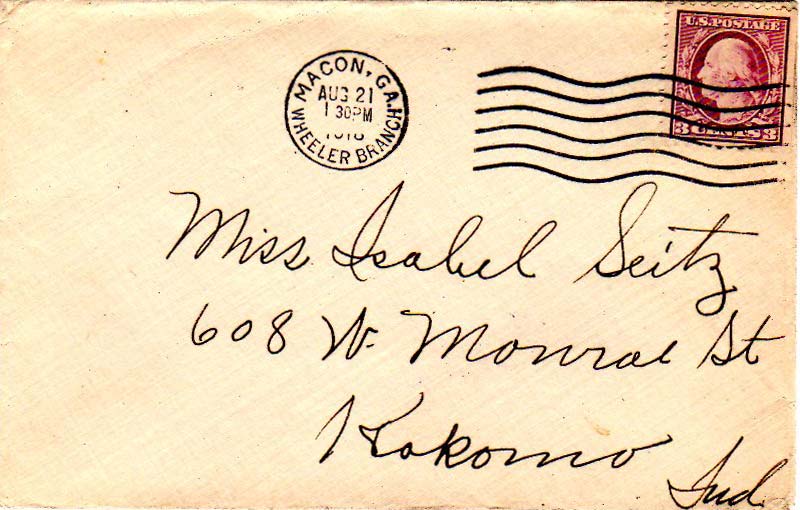 U.S. POSTAGE
3 CENTS 3
MACON, GA.
AUG 21
1 30PM
1918
WHEELER BRANCH
Miss Isabel Seitz
608 W. Monroe St
Kokomo
Ind.